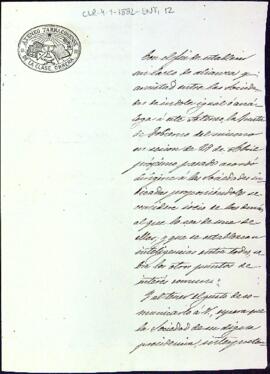 CLR-4-1-1882-ENT, 12
ATENEO TARRACONENSE
DE LA CLASE OBRERA
Con el fin de establecer
un lazo de alianza y
amistad entre las Socieda-
des de índole igual ó análo-
ga á este Ateneo, la Junta
de Gobierno del mismo
en sesion de 19 de Abril
próximo pasado acordó
dirigirse á las Sociedades in-
dicadas proponiéndoles se
considere sócio de las demás
al que lo sea de una de
ellas, y que se establezcan
inteligencias entre todas, so-
bre los otros puntos de
interés comun.
Y al tener el gusto de co-
municarlo á V., espera que
la Sociedad de su digna
presidencia,